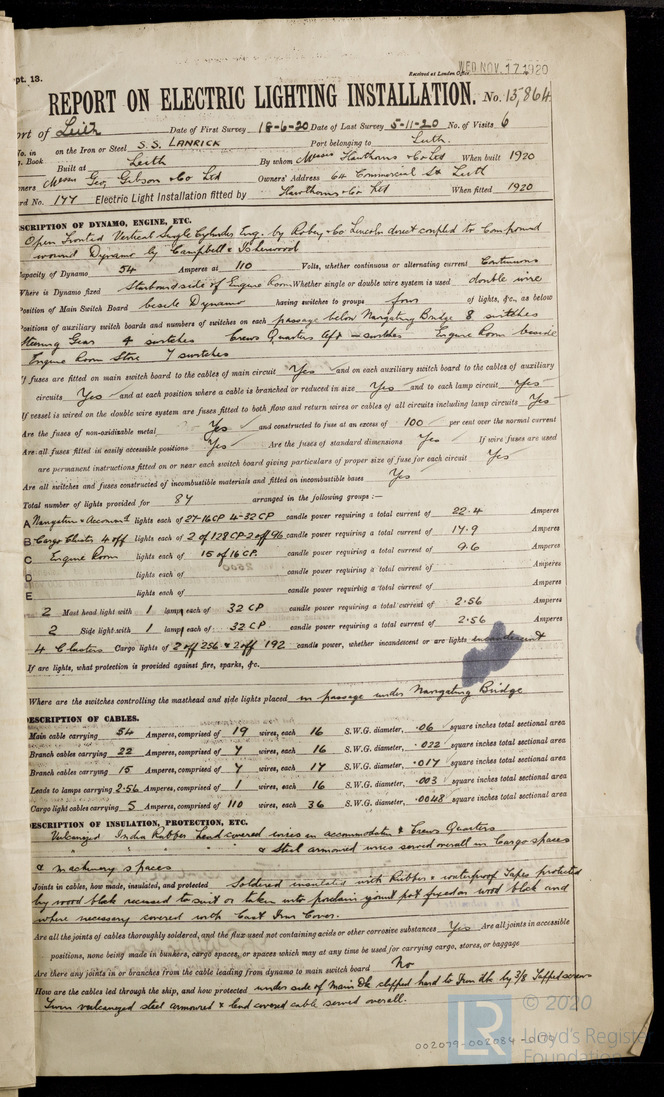 pt. 13.
Received at London Office WED NOV. 17 1920
REPORT ON ELECTRIC LIGHTING INSTALLATION. No. 13,864
ort of Leith Date of First Survey 18-6-20 Date of Last Survey 5-11-20 No. of Visits 6
No. in on the Iron or Steel S.S. LANRICK Port belonging to Leith.
. Book Built at Leith By whom Messrs Hawthorns & Co Ltd When built 1920
wners Messrs Geo. Gibson & Co Ltd Owners' Address 64 Commercial St Leith
rd No. 177 Electric Light Installation fitted by Hawthorns & Co Ltd When fitted 1920
ESCRIPTION OF DYNAMO, ENGINE, ETC.
Open Fronted Vertical Single Cylinder Eng. by Robey & Co Lincoln direct coupled to Compound
wound Dynamo by Campbell & Isherwood
Capacity of Dynamo 54 Amperes at 110 Volts, whether continuous or alternating current Continuous
Where is Dynamo fixed Starboard side of Engine Room Whether single or double wire system is used double wire
Position of Main Switch Board beside Dynamo having switches to groups four of lights, &c., as below
Positions of auxiliary switch boards and numbers of switches on each passage below Navigating Bridge 8 switches
Steering Gear 4 switches Crews Quarters left - switches Engine Room beside
Engine Room Store 7 switches
If fuses are fitted on main switch board to the cables of main circuit Yes and on each auxiliary switch board to the cables of auxiliary
circuits Yes and at each position where a cable is branched or reduced in size Yes and to each lamp circuit Yes
If vessel is wired on the double wire system are fuses fitted to both flow and return wires or cables of all circuits including lamp circuits Yes
Are the fuses of non-oxidizable metal Yes and constructed to fuse at an excess of 100 per cent over the normal current
Are all fuses fitted in easily accessible positions Yes Are the fuses of standard dimensions Yes If wire fuses are used
are permanent instructions fitted on or near each switch board giving particulars of proper size of fuse for each circuit Yes
Are all switches and fuses constructed of incombustible materials and fitted on incombustible bases Yes
Total number of lights provided for 87 arranged in the following groups :—
A Navigation & Accommt lights each of 27-16CP 4-32CP candle power requiring a total current of 22.4 Amperes
B Cargo Clusts 4 off lights each of 2 of 128 CP 2 off 96 candle power requiring a total current of 17.9 Amperes
C Engine Room lights each of 15 of 16 CP. candle power requiring a total current of 9.6 Amperes
D lights each of candle power requiring a total current of Amperes
E lights each of candle power requiring a total current of Amperes
2 Mast head light with 1 lamp each of 32 CP candle power requiring a total current of 2.56 Amperes
2 Side light with 1 lamp each of 32 CP candle power requiring a total current of 2.56 Amperes
4 Clusters Cargo lights of 2 off 256 & 2 off 192 candle power, whether incandescent or arc lights incandescent
If arc lights, what protection is provided against fire, sparks, &c.
Where are the switches controlling the masthead and side lights placed in passage under Navigating Bridge
DESCRIPTION OF CABLES.
Main cable carrying 54 Amperes, comprised of 19 wires, each 16 S.W.G. diameter, .06 square inches total sectional area
Branch cables carrying 22 Amperes, comprised of 7 wires, each 16 S.W.G. diameter, .022 square inches total sectional area
Branch cables carrying 15 Amperes, comprised of 7 wires, each 17 S.W.G. diameter, .017 square inches total sectional area
Leads to lamps carrying 2.56 Amperes, comprised of 1 wires, each 16 S.W.G. diameter, .003 square inches total sectional area
Cargo light cables carrying 5 Amperes, comprised of 110 wires, each 36 S.W.G. diameter, .0048 square inches total sectional area
DESCRIPTION OF INSULATION, PROTECTION, ETC.
Vulcanized India Rubber Lead covered wires in accommodation & Crews Quarters
" " " & Steel armoured wires served overall in Cargo spaces
& machinery spaces
Joints in cables, how made, insulated, and protected Soldered insulated with Rubber & waterproof Tapes protected
by wood block recessed to suit or taken into porcelain joint pot fixed on wood block and
where necessary covered with Cast Iron Cover.
Are all the joints of cables thoroughly soldered, and the flux used not containing acids or other corrosive substances Yes Are all joints in accessible
positions, none being made in bunkers, cargo spaces, or spaces which may at any time be used for carrying cargo, stores, or baggage
Are there any joints in or branches from the cable leading from dynamo to main switch board No
How are the cables led through the ship, and how protected under side of Main Dk clipped hard to Iron Dk by 3/8 Tapped screws
Twin vulcanized steel armoured & lead covered cable served overall.
LR © 2020
Lloyd's Register
Foundation